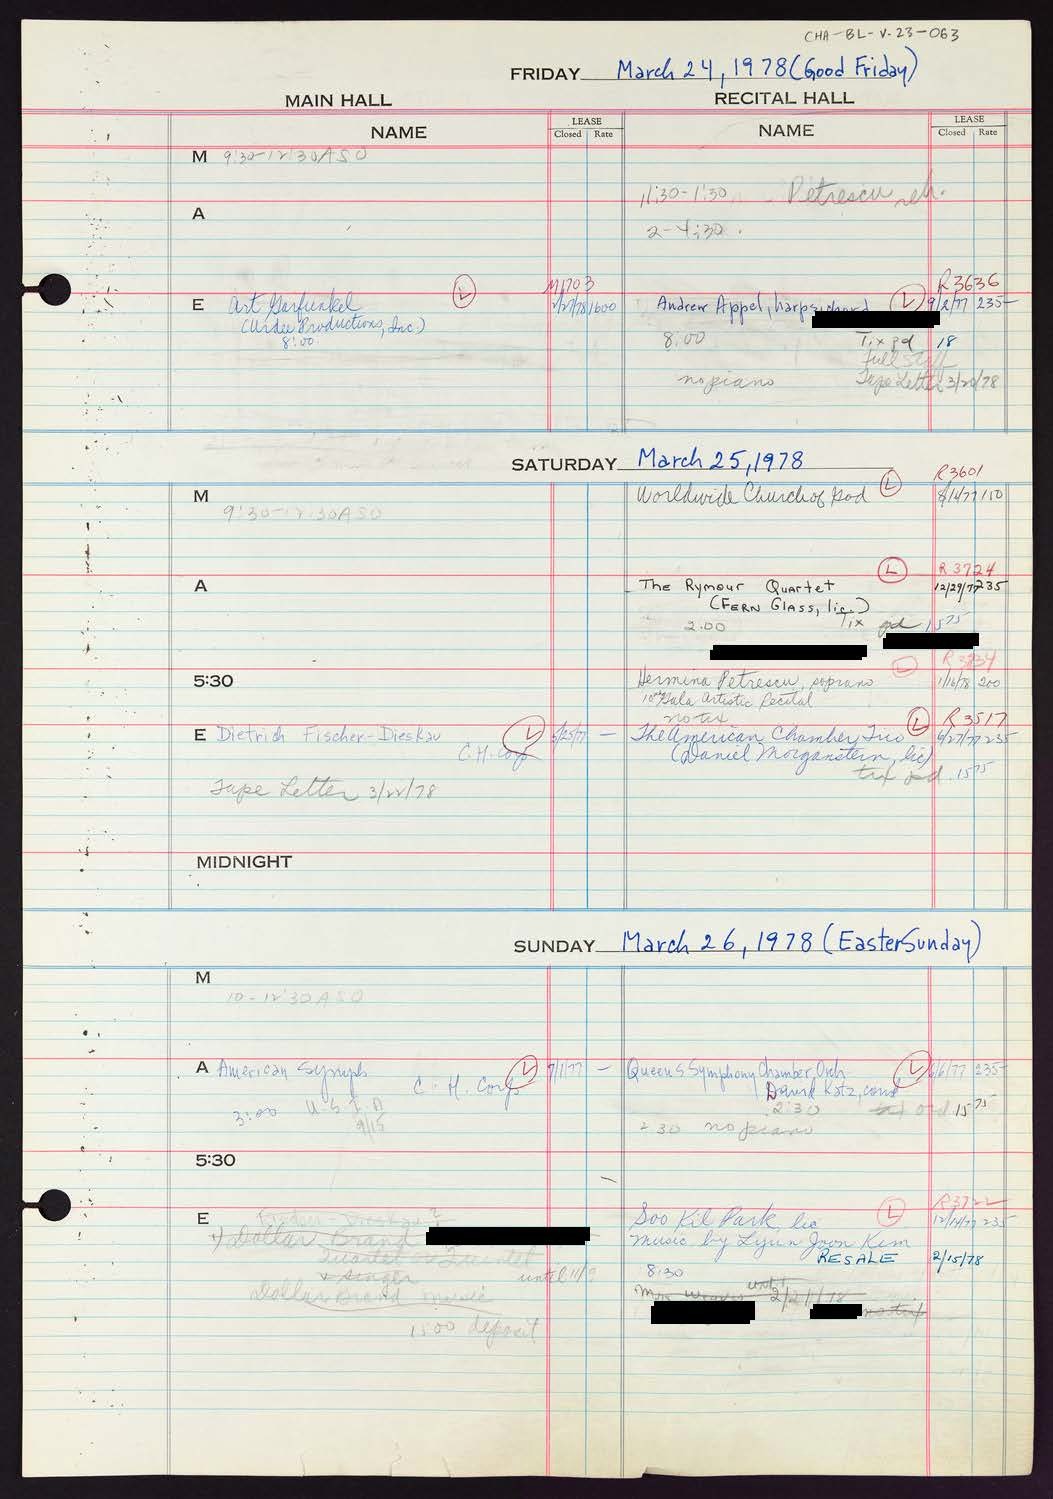 CHA-BL-V.23-063
FRIDAY March 24, 1978 (Good Friday)
MAIN HALL
RECITAL HALL
NAME
LEASE
Closed Rate
NAME
LEASE
Closed Rate
M 9:30-12:30 ASO
11:30-1:30 Petrescu reh.
A
2-4:30.
M1703
R3636
E Art Garfunkel L 2/27/78 1600
Andrew Appel, harpsichord L 9/2/77 235-
(Urdee Productions, Inc.)
8:00
8:00 Tix pd 18
Full Staff
no piano Tape Letter 3/20/78
SATURDAY March 25, 1978
R3601
M
Worldwide Church of God L 8/1/77 110
9:30-12:30 ASO
R3724
A
The Rymour Quartet L 12/29/77 235
(FERN GLASS, lic.)
2:00 Tix pd 1575
5:30
Hermina Petrescu, soprano L 1/16/78 200
Gala Artistic Recital
no tix
R3517
E Dietrich Fischer-Dieskau L 5/25/77 —
The American Chamber Trio L 6/27/77 235
C.H. Corp
(Daniel Morganstern, lic)
tix pd 1575
Tape Letter 3/22/78
MIDNIGHT
SUNDAY March 26, 1978 (Easter Sunday)
M
10-12:30 ASO
A American Symph L 7/1/77 —
Queens Symphony Chamber Orch L 6/6/77 235-
C. H. Corp
David Katz, cond
3:00
2:30 ord 1575
9/15
2 30 no piano
5:30
R3722
E Fischer-Dieskau ?
Soo Kil Park, lic L 12/14/77 235
Dollar Brand
Music by Lyun Joon Kim
Quartet or Quintet
RESALE 2/15/78
+ singer until 11/9
8:30
Dollar Brand music
until
1500 deposit
no tix